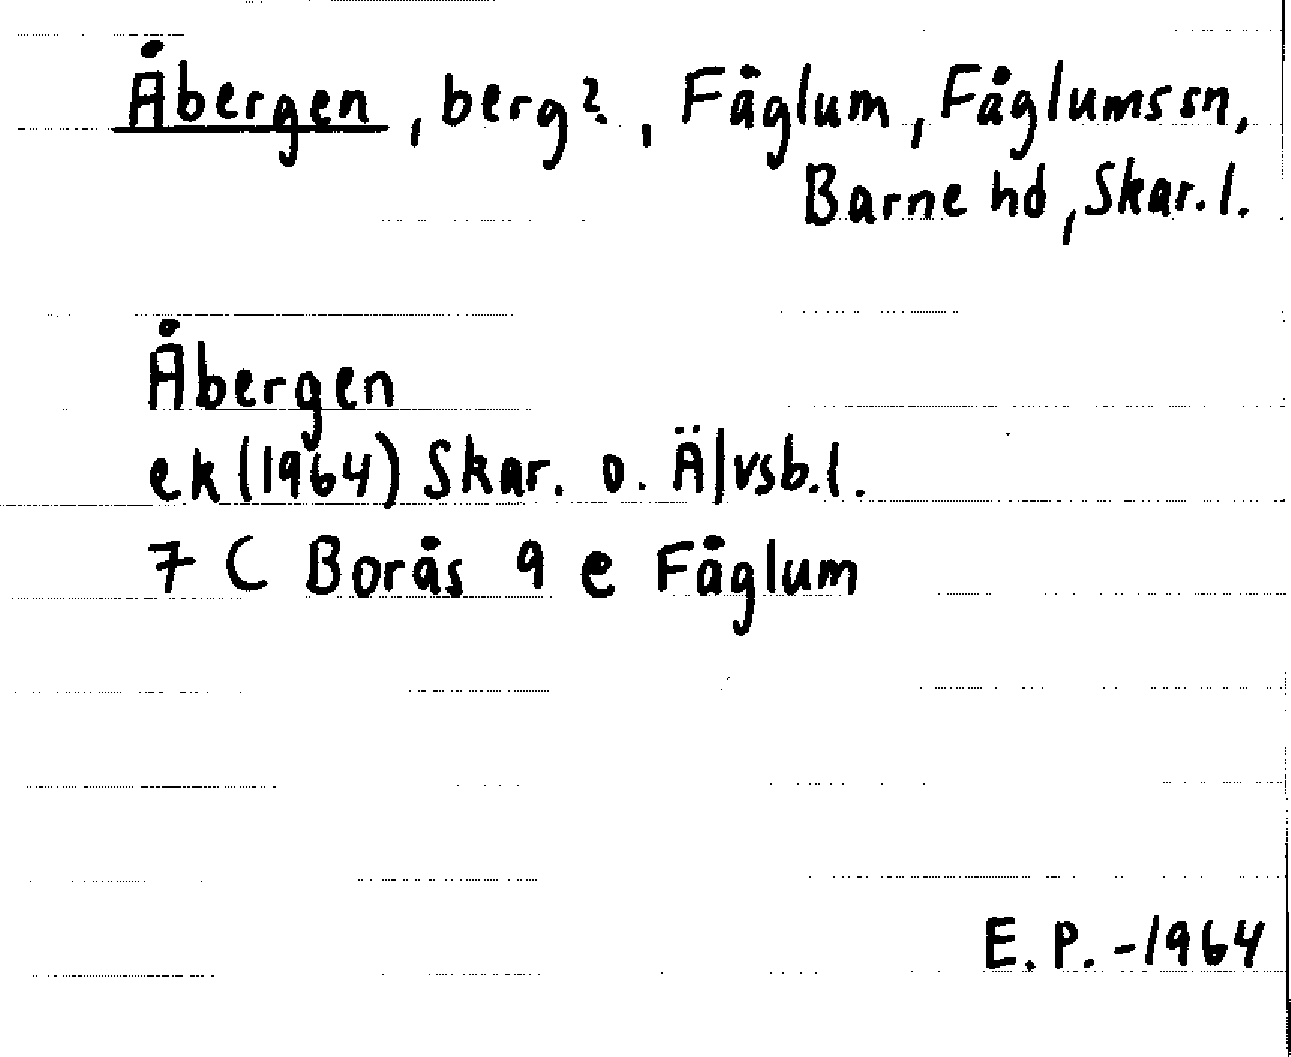 Åbergen, berg?, Fåglum, Fåglums sn,
Barne hd, Skar. l.
Åbergen
ek (1964) Skar. o. Älvsb. l.
7 C Borås 9 e Fåglum
E. P. -1964